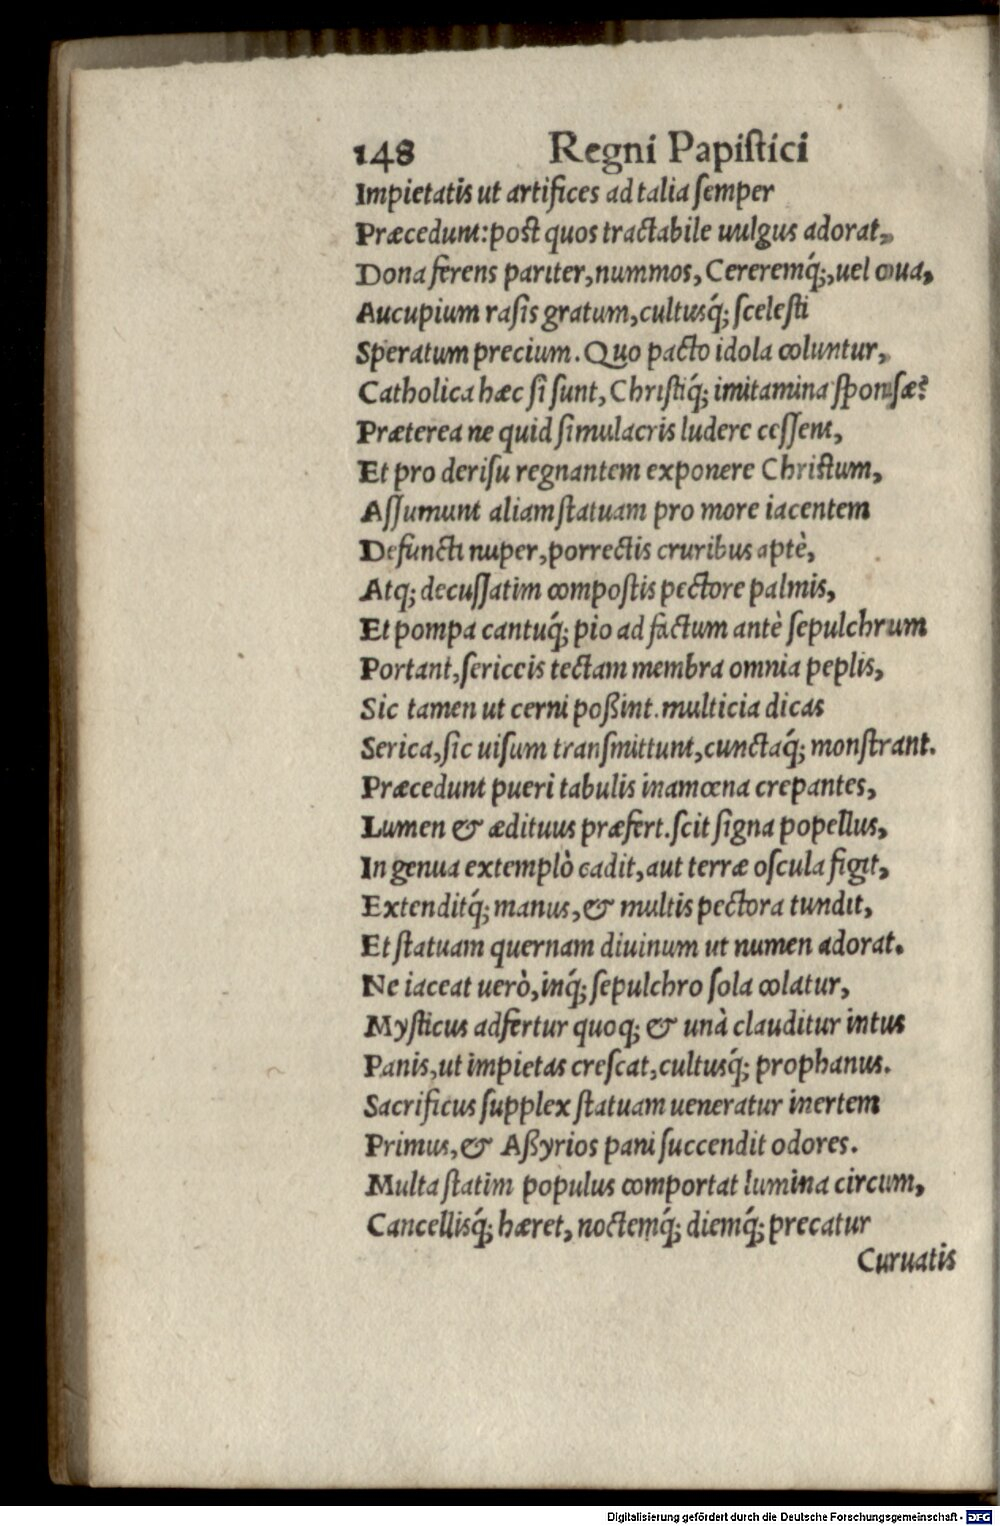 148 Regni Papiſtici
Impietatis ut artifices ad talia ſemper
Præcedunt: poſt quos tractabile uulgus adorat,
Dona ferens pariter, nummos, Cereremq́;, uel oua,
Aucupium raſis gratum, cultusq́; ſceleſti
Speratum precium. Quo pacto idola coluntur,
Catholica hæc ſi ſunt, Chriſtiq́; imitamina ſponſæ?
Præterea ne quid ſimulacris ludere ceſſent,
Et pro deriſu regnantem exponere Chriſtum,
Aſſumunt aliam ſtatuam pro more iacentem
Defuncti nuper, porrectis cruribus aptè,
Atq; decuſſatim compoſtis pectore palmis,
Et pompa cantuq́; pio ad factum antè ſepulchrum
Portant, ſericeis tectam membra omnia peplis,
Sic tamen ut cerni poßint. multicia dicas
Serica, ſic uiſum tranſmittunt, cunctaq́; monſtrant.
Præcedunt pueri tabulis inamœna crepantes,
Lumen & ædituus præfert. ſcit ſigna popellus,
In genua extemplò cadit, aut terræ oſcula figit,
Extenditq́; manus, & multis pectora tundit,
Et ſtatuam quernam diuinum ut numen adorat.
Ne iaceat uerò, inq́; ſepulchro ſola colatur,
Myſticus adfertur quoq; & unà clauditur intus
Panis, ut impietas creſcat, cultusq́; prophanus.
Sacrificus ſupplex ſtatuam ueneratur inertem
Primus, & Aßyrios pani ſuccendit odores.
Multa ſtatim populus comportat lumina circum,
Cancellisq́; hæret, noctemq́; diemq́; precatur
Curuatis
Digitalisierung gefördert durch die Deutsche Forschungsgemeinschaft - DFG